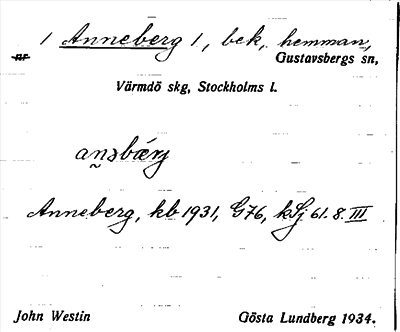 1 Anneberg 1, bek, hemman,
nr Gustavsbergs sn,
Värmdö skg, Stockholms l.
an̰əbærj
Anneberg, kb 1931, G76, kSj 61.8.III
John Westin Gösta Lundberg 1934.